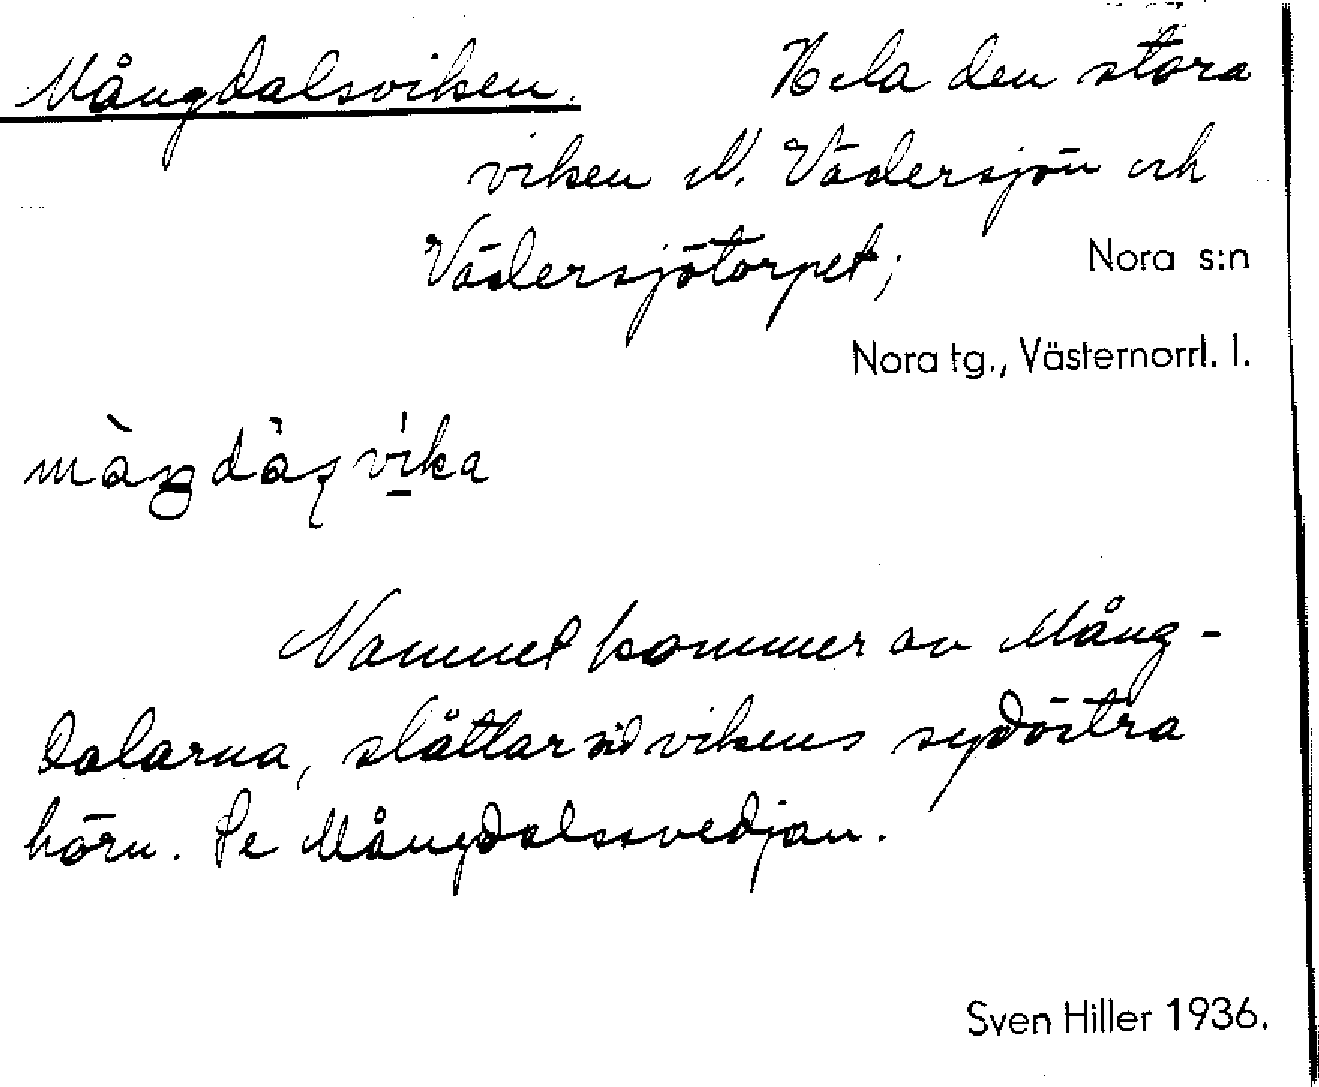 Mångdalsviken. Hela den stora
viken N. Vädersjön och
Vädersjötorpet;
Nora s:n
Nora tg., Västernorrl. l.
Namnet kommer av Mång-
dalarna, slåttar vid vikens sydöstra
hörn. Se Mångdalssvedjan.
Sven Hiller 1936.